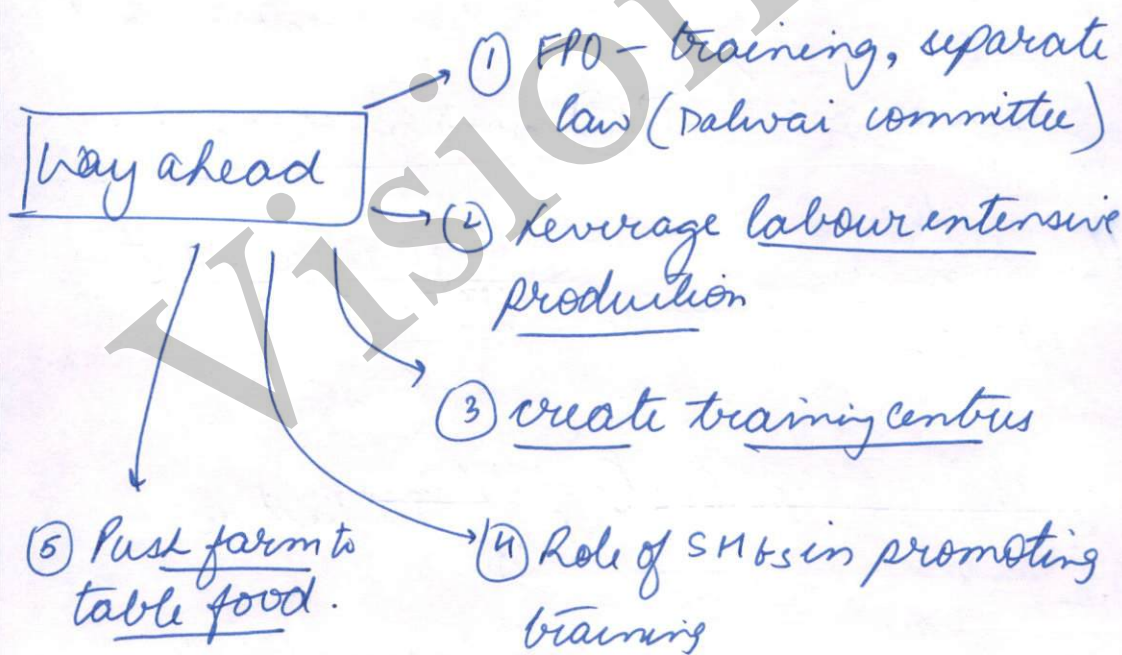 Way ahead
① FPO - training, separate
law (Dalwai committee)
② Leverage labour intensive
production
③ create training centres
④ Role of SHGs in promoting
training
⑤ Push farm to
table food.
Vision